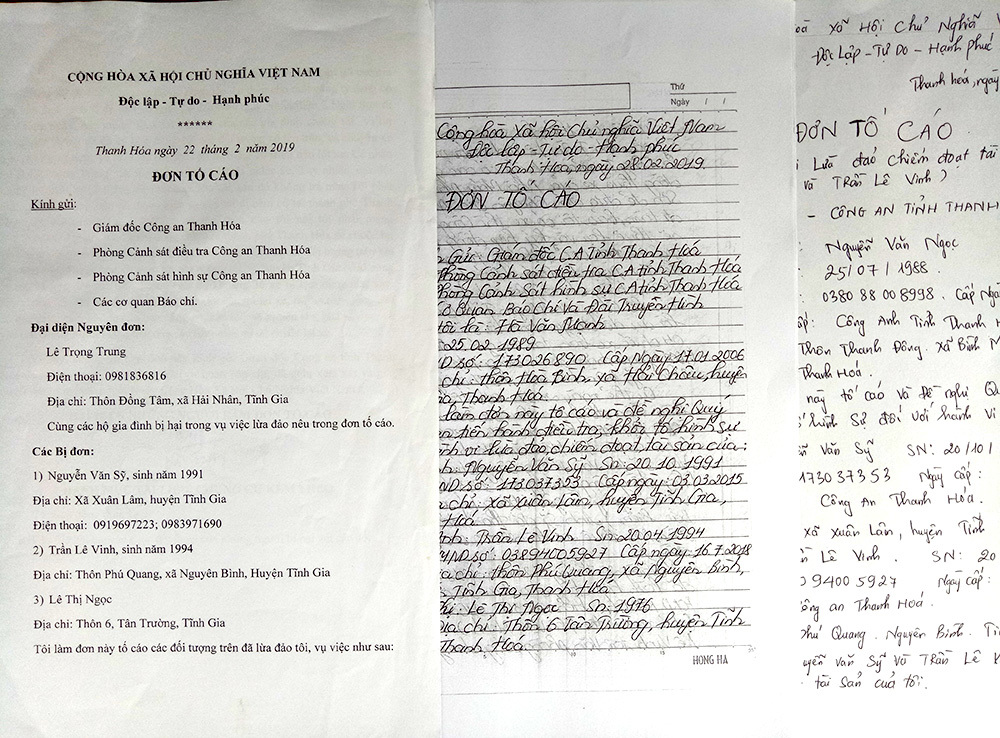 CỘNG HÒA XÃ HỘI CHỦ NGHĨA VIỆT NAM
Độc lập - Tự do - Hạnh phúc
******
Thanh Hóa ngày 22 tháng 2 năm 2019
ĐƠN TỐ CÁO
Kính gửi:
- Giám đốc Công an Thanh Hóa
- Phòng Cảnh sát điều tra Công an Thanh Hóa
- Phòng Cảnh sát hình sự Công an Thanh Hóa
- Các cơ quan Báo chí.
Đại diện Nguyên đơn:
Lê Trọng Trung
Điện thoại: 0981836816
Địa chỉ: Thôn Đồng Tâm, xã Hải Nhân, Tĩnh Gia
Cùng các hộ gia đình bị hại trong vụ việc lừa đảo nêu trong đơn tố cáo.
Các Bị đơn:
1) Nguyễn Văn Sỹ, sinh năm 1991
Địa chỉ: Xã Xuân Lâm, huyện Tĩnh Gia
Điện thoại: 0919697223; 0983971690
2) Trần Lê Vinh, sinh năm 1994
Địa chỉ: Thôn Phú Quang, xã Nguyên Bình, Huyện Tĩnh Gia
3) Lê Thị Ngọc
Địa chỉ: Thôn 6, Tân Trường, Tĩnh Gia
Tôi làm đơn này tố cáo các đối tượng trên đã lừa đảo tôi, vụ việc như sau:
Thứ
Ngày / /
Cộng hòa Xã hội Chủ nghĩa Việt Nam
Độc lập - Tự do - Hạnh phúc
Thanh Hoá, ngày 28.02.2019
ĐƠN TỐ CÁO
Gửi: Giám đốc CA Tỉnh Thanh Hoá
Phòng Cảnh sát điều tra CA tỉnh Thanh Hoá
Phòng Cảnh Sát hình sự CA tỉnh Thanh Hoá
Quan Báo Chí Và Đài Truyền Hình
tôi là: Hà Văn Mạnh
25.02.1989
ND số: 173026890 Cấp Ngày 17.01.2006
chỉ: thôn Hoà Bình, xã Hải Châu, huyện
Gia, Thanh Hoá.
làm đơn này tố cáo và đề nghị Quý
tiến hành điều tra, khởi tố hình sự
vi lừa đảo, chiếm đoạt, tài sản của:
Nguyễn Văn Sỹ Sn: 20.10.1991
ND số: 173037353 Cấp ngày: 03.03.2015
chỉ: xã Xuân Lâm, huyện Tĩnh Gia,
Hoá
Trần Lê Vinh Sn: 20.04.1994
CMND số: 038940059​27 Cấp ngày: 16.7.2018
chỉ: thôn Phú Quang, xã Nguyên Bình,
Tĩnh Gia, Thanh Hoá.
Lê Thị Ngọc Sn: 1976
chỉ: Thôn 6 Tân Trường, huyện Tĩnh
Thanh Hoá.
HONG HA
Xã Hội Chủ Nghĩa
Độc Lập - Tự Do - Hạnh phúc
Thanh hoá, ngày
ĐƠN TỐ CÁO
Lừa đảo chiếm đoạt tài
và Trần Lê Vinh)
- CÔNG AN TỈNH THANH
Nguyễn Văn Ngọc
25/07/1988.
0380 88 00 8998. Cấp
Công Anh Tỉnh Thanh
Thôn Thanh Đông. Xã Bình
Thanh Hoá.
này tố cáo và đề nghị
hình Sự đối với hành vi
Văn Sỹ SN: 20/10/
173037353 Ngày cấp:
Công An Thanh Hóa.
xã Xuân Lâm, huyện Tĩnh
Lê Vinh. SN: 20
9400 5927 Ngày cấp:
an Thanh Hoá.
Phú Quang. Nguyên Bình.
Văn Sỹ và Trần Lê
tài Sản của tôi.